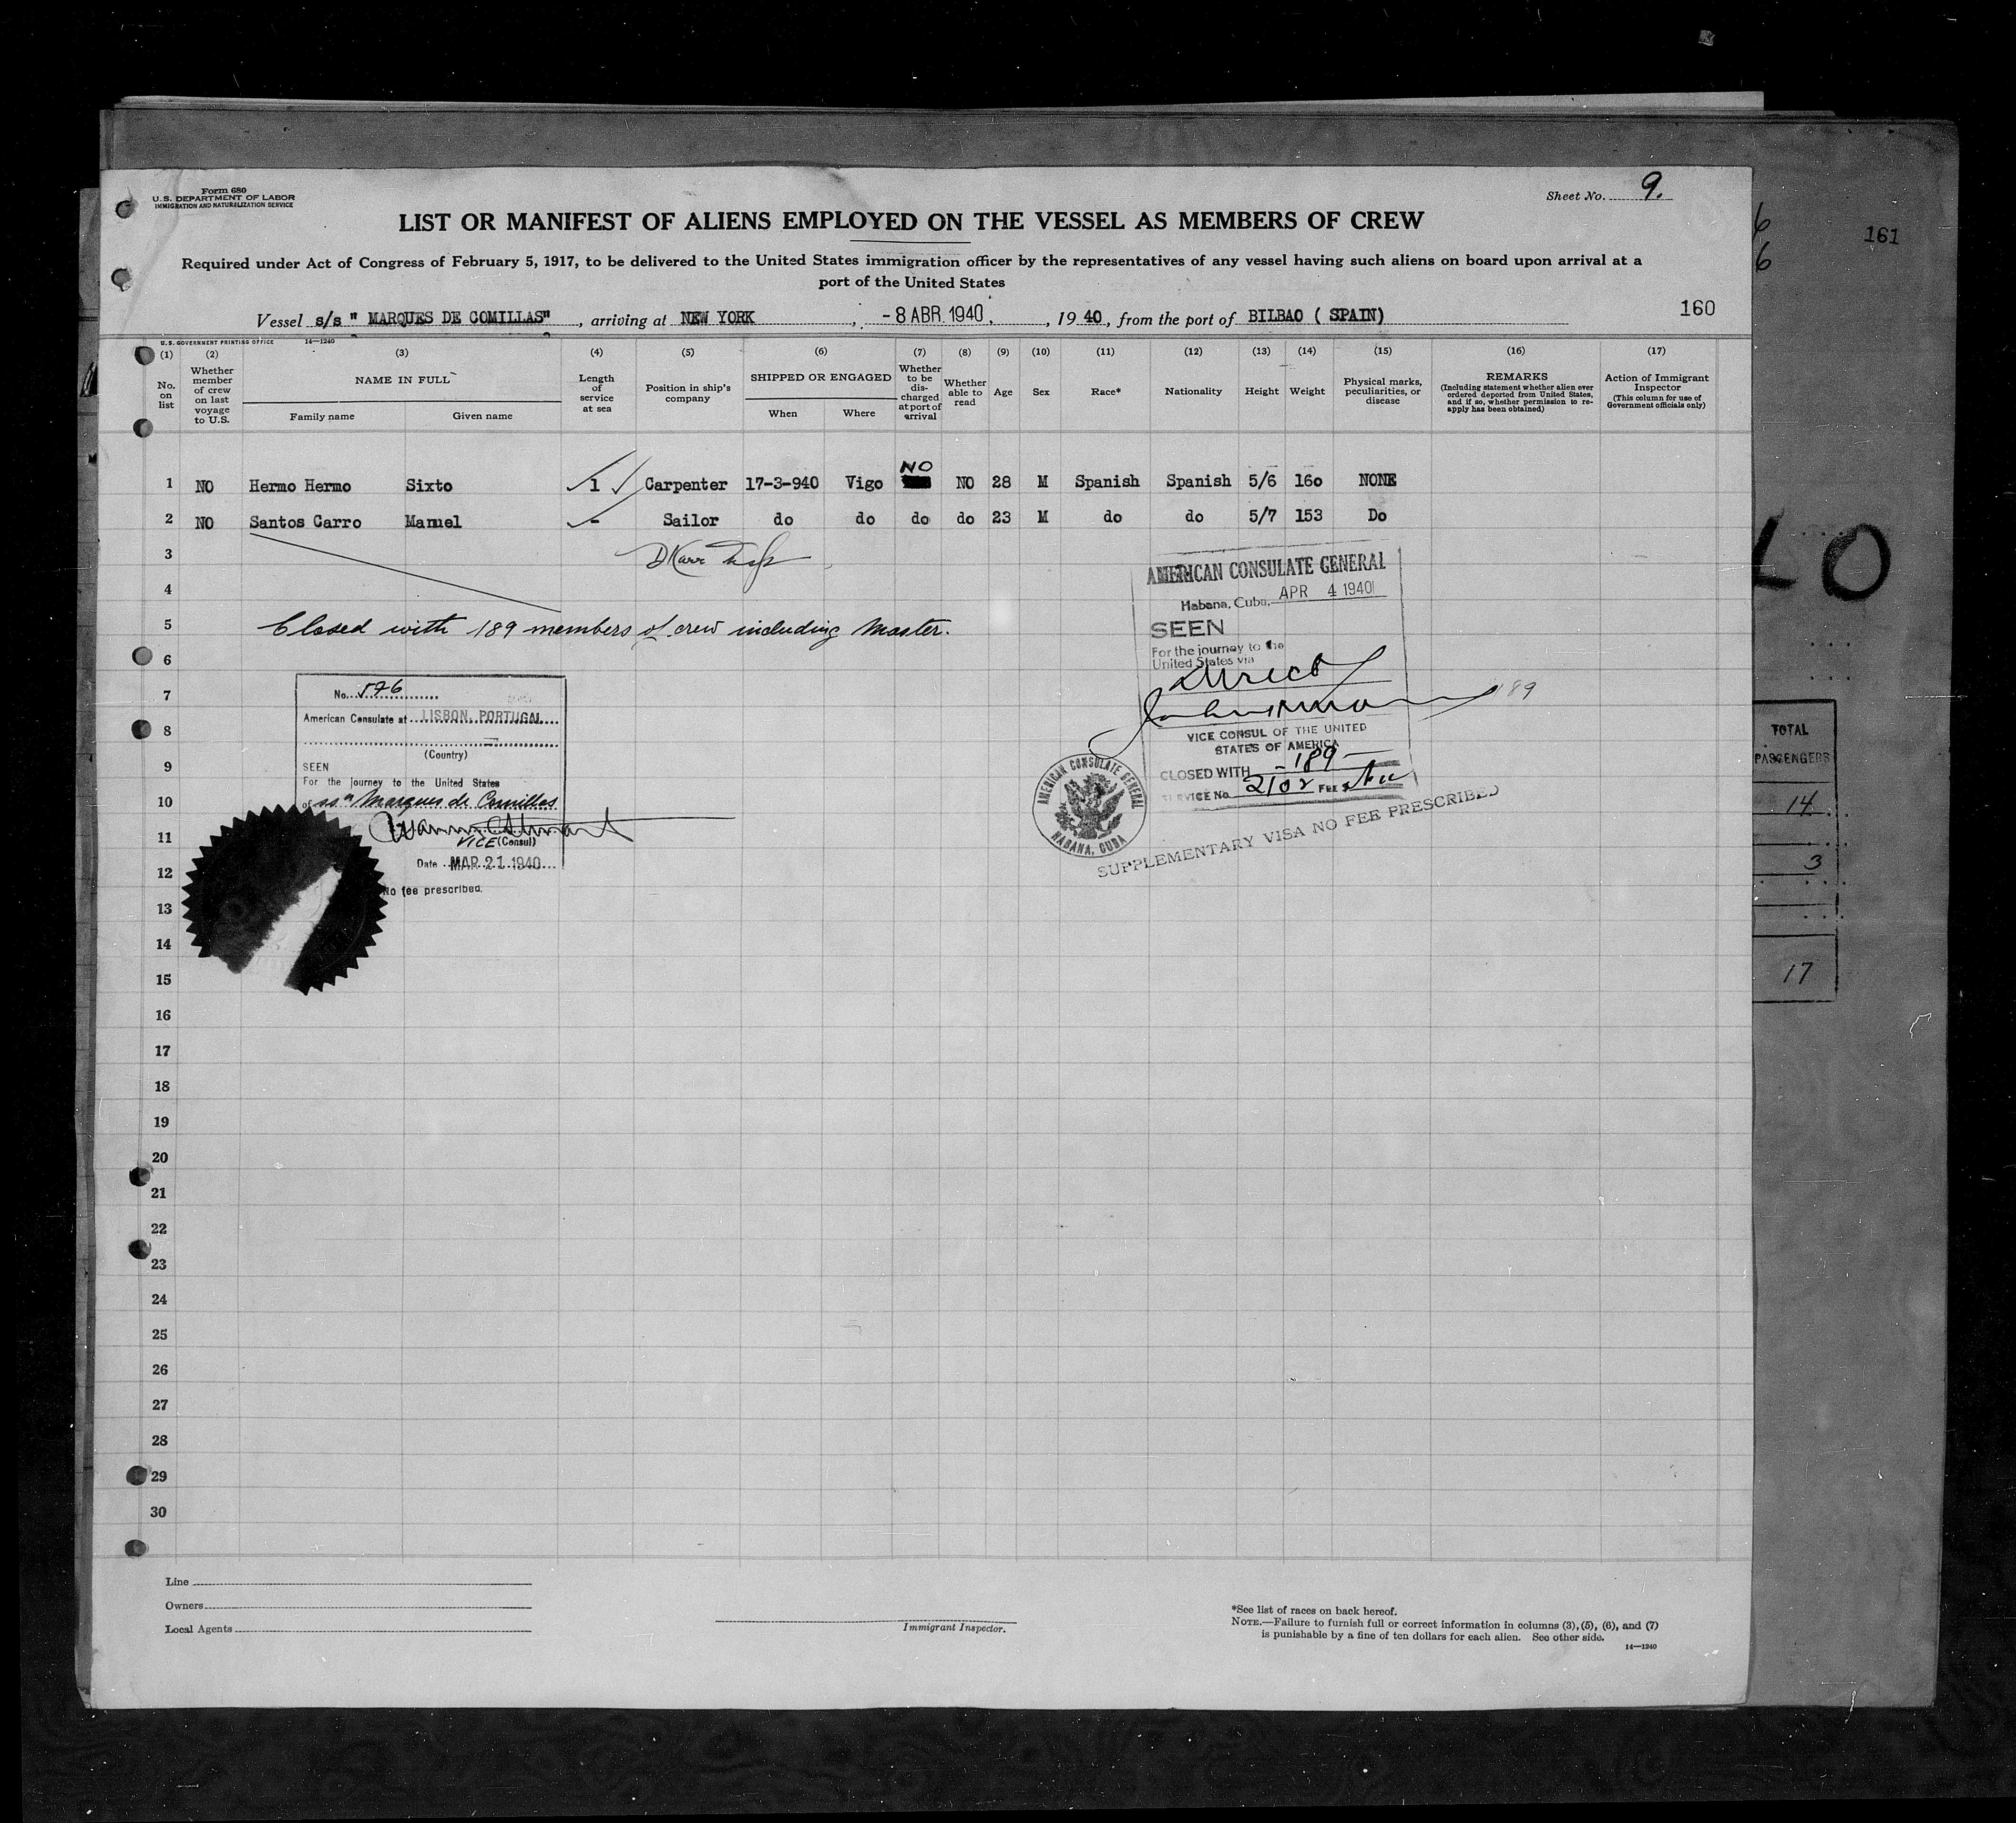 Form 680
U.S. DEPARTMENT OF LABOR
IMMIGRATION AND NATURALIZATION SERVICE
Sheet No. 9.
LIST OR MANIFEST OF ALIENS EMPLOYED ON THE VESSEL AS MEMBERS OF CREW
Required under Act of Congress of February 5, 1917, to be delivered to the United States immigration officer by the representatives of any vessel having such aliens on board upon arrival at a
port of the United States
Vessel s/s " MARQUES DE COMILLAS" , arriving at NEW YORK , - 8 ABR. 1940 , 19 40 , from the port of BILBAO ( SPAIN)
160
161
U.S. GOVERNMENT PRINTING OFFICE 14—1240
(1) (2) (3) (4) (5) (6) (7) (8) (9) (10) (11) (12) (13) (14) (15) (16) (17)
No. on list
Whether member of crew on last voyage to U.S.
NAME IN FULL
Family name Given name
Length of service at sea
Position in ship's company
SHIPPED OR ENGAGED
When Where
Whether to be discharged at port of arrival
Whether able to read
Age
Sex
Race*
Nationality
Height
Weight
Physical marks, peculiarities, or disease
REMARKS
(Including statement whether alien ever ordered deported from United States, and if so, whether permission to reapply has been obtained)
Action of Immigrant Inspector
(This column for use of Government officials only)
NO
1 NO Hermo Hermo Sixto 1 Carpenter 17-3-940 Vigo NO 28 M Spanish Spanish 5/6 160 NONE
2 NO Santos Carro Manuel - Sailor do do do do 23 M do do 5/7 153 Do
3
4
5 Closed with 189 members of crew including Master.
6
7
8
9
10
11
12
13
14
15
16
17
18
19
20
21
22
23
24
25
26
27
28
29
30
No. 576
American Consulate at LISBON, PORTUGAL
(Country)
SEEN
For the journey to the United States
of ss" Marques de Comillas
VICE (Consul)
Date MAR 21 1940
No fee prescribed.
AMERICAN CONSULATE GENERAL
Habana, Cuba, APR 4 1940
SEEN
For the journey to the
United States via
direct
189
VICE CONSUL OF THE UNITED
STATES OF AMERICA
CLOSED WITH - 189 -
SERVICE No. 2102 FEE $
AMERICAN CONSULATE GENERAL
HABANA, CUBA
SUPPLEMENTARY VISA NO FEE PRESCRIBED
TOTAL
PASSENGERS
14
3
17
Line
Owners
Local Agents
Immigrant Inspector.
*See list of races on back hereof.
NOTE.—Failure to furnish full or correct information in columns (3), (5), (6), and (7)
is punishable by a fine of ten dollars for each alien. See other side.
14—1240